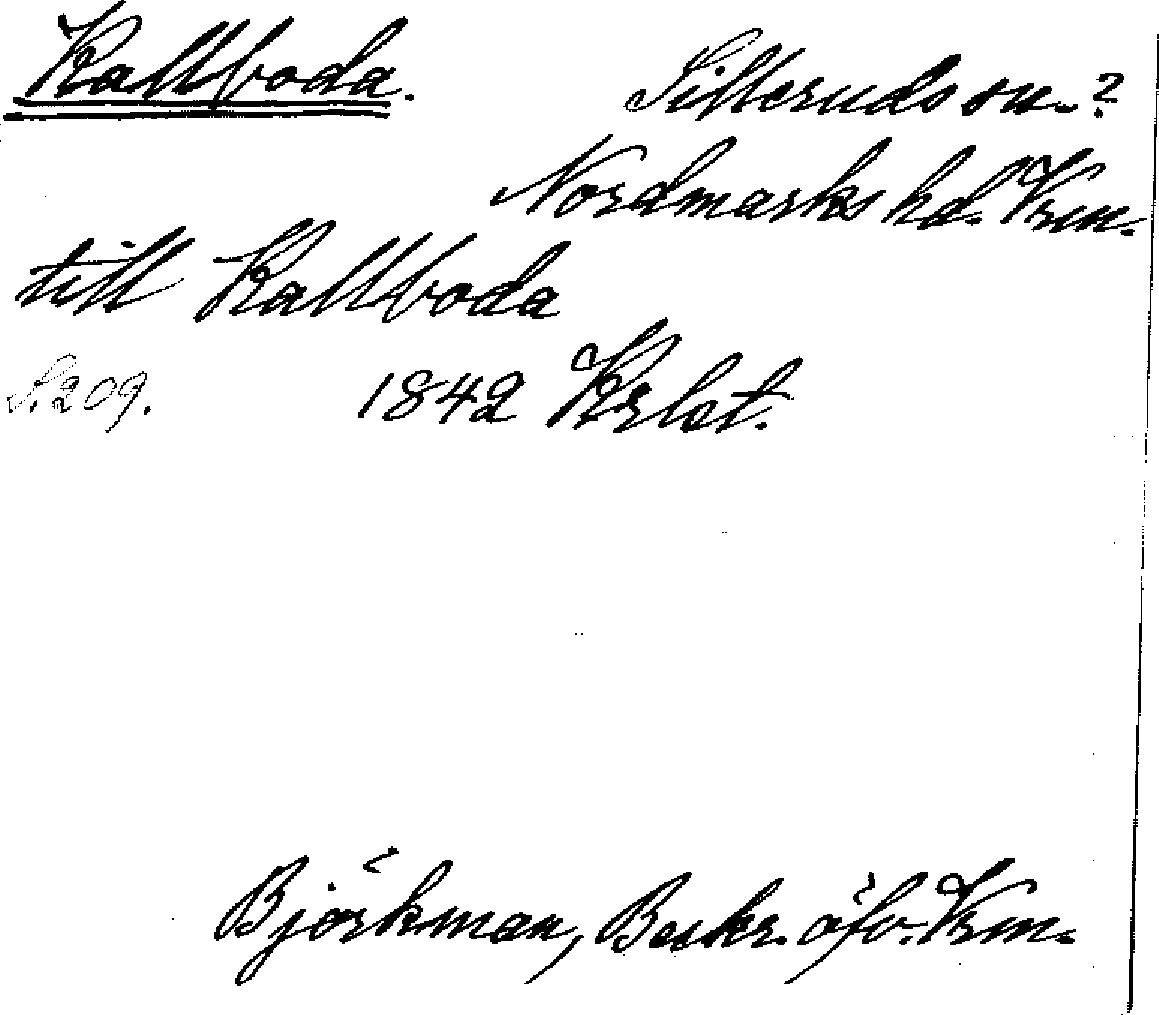 Kallboda.
Silleruds sn.?
Nordmarks hd. Vrm.
till Kallboda
S. 209. 1842 Krlst.
Björkman, Beskr. öfv. Vrm.